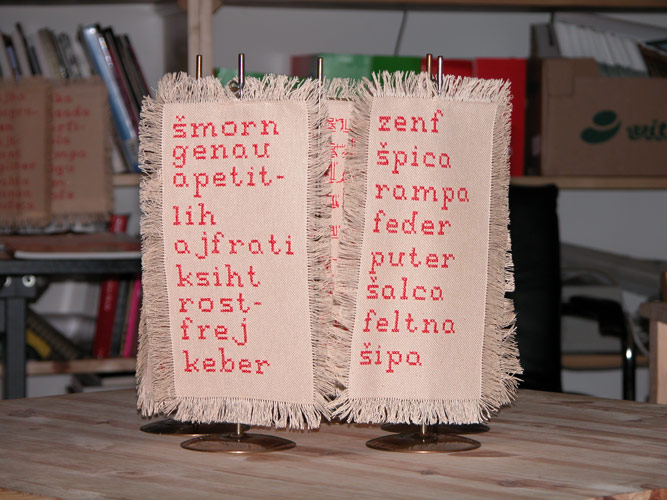 šmorn
genau
apetit-
lih
ajfrati
ksiht
rost-
frej
keber
zenf
špica
rampa
feder
puter
šalca
feltna
šipa